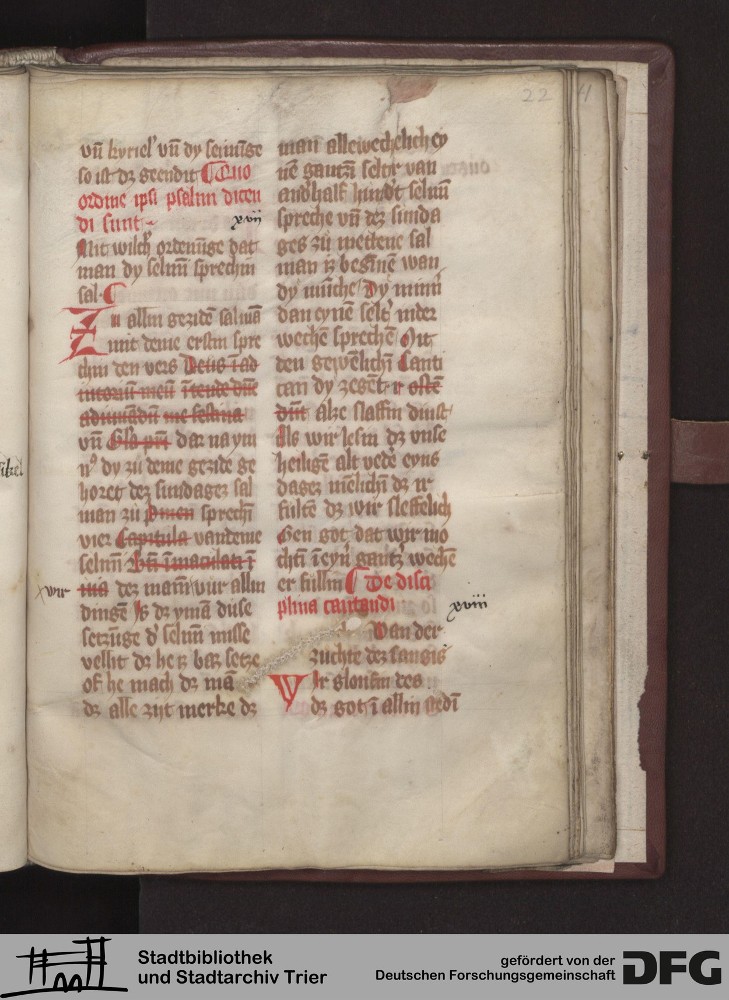 22
vn̄ kyriel' vn̄ dy seinūge
so ist dz geendit Quo
ordine ipsi psalmi dicen
di sunt xvij
Mit wilch' ordenūge dat
man dy selmn̄ sprechin
sal
Zu allin gezidē sal man
mit deme erstin spre
chin den vers Deus ī ad
iutoriū meū ītende dn̄e
adiuuādū me festina
vn̄ Gl'a pr̄i dar na ym
dy zu deme gezide ge
horet dez sundagez sal
man zu Primen sprech̄
vier Capitula van deme
selmn̄ Bt̄i īmaculati ī
uia dez man̄ vur allin
dingē Is dz ymā dise
setzūge d' selmn̄ misse
vellit dz he iz baz setze
of he mach dz mā
dz alle zijt merke dz
man allewechelich ey
nē gantzī selt'r van
andhalf hund't selmn̄
spreche vn̄ dez sunda
ges zu mettene sal
man iz begīnē wan
dy mūche Dy minn
dan eynē selt' in der
wechē sprechē Mit
den gewēlich̄ Canti
can dy zegēt
alze slaffin dinst
Als wir lesin dz vnse
heiligē alt vedē eyns
dagez mēlich̄ dz ir
fultē dz wir sleffelich
Gen got dat wir mo
cht̄ ī eyn' gantz' wechē
er fullin De disci
plina cantandi xviii
Van der
zuchte dez sangis
Wir gloubin des
dz got ī allin
Stadtbibliothek
und Stadtarchiv Trier
gefördert von der
Deutschen Forschungsgemeinschaft
DFG